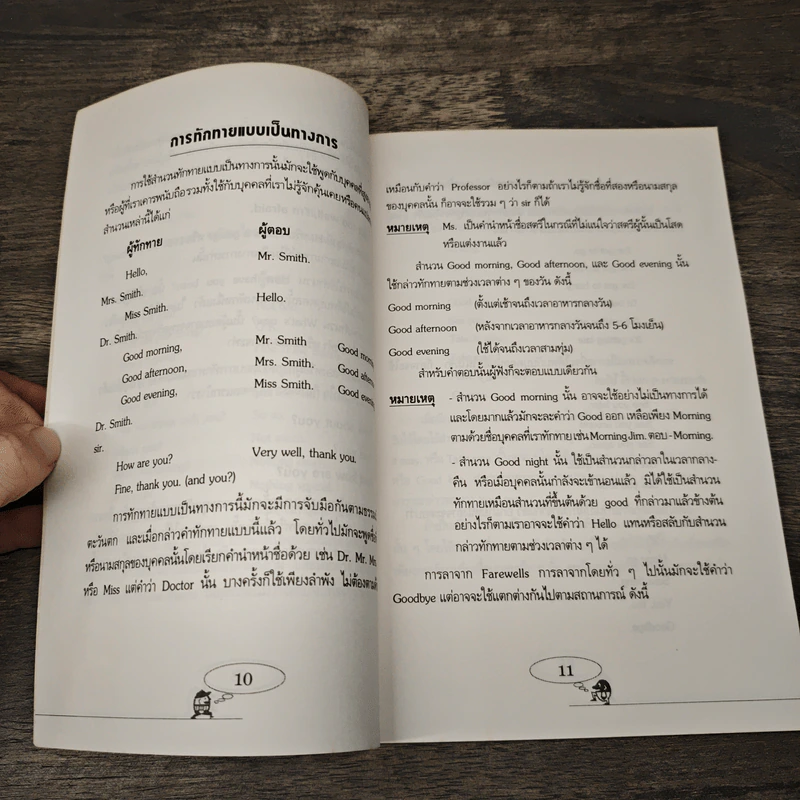 การทักทายแบบเป็นทางการ
การใช้สำนวนทักทายแบบเป็นทางการนั้นมักจะใช้พูดกับบุคคลที่
หรือผู้ที่เราเคารพนับถือ รวมทั้งใช้กับบุคคลที่เราไม่รู้จักคุ้นเคยหรือ
สำนวนเหล่านี้ได้แก่
ผู้ทักทาย ผู้ตอบ
Hello, Mr. Smith.
Mrs. Smith.
Miss Smith. Hello.
Dr. Smith.
Good morning, Mr. Smith Good
Good afternoon, Mrs. Smith. Good
Good evening, Miss Smith. Good evening,
Dr. Smith.
sir.
How are you? Very well, thank you.
Fine, thank you. (and you?)
การทักทายแบบเป็นทางการนี้มักจะมีการจับมือกันตาม
ตะวันตก และเมื่อกล่าวคำทักทายแบบนี้แล้ว โดยทั่วไปมักจะพูด
หรือนามสกุลของบุคคลนั้นโดยเรียกคำนำหน้าชื่อด้วย เช่น Dr. Mr.
หรือ Miss แต่คำว่า Doctor นั้น บางครั้งก็ใช้เพียงลำพัง ไม่ต้อง
10
เหมือนกับคำว่า Professor อย่างไรก็ตามถ้าเราไม่รู้จักชื่อที่สองหรือนามสกุล
ของบุคคลนั้น ก็อาจจะใช้รวม ๆ ว่า sir ก็ได้
หมายเหตุ Ms. เป็นคำนำหน้าชื่อสตรีในกรณีที่ไม่แน่ใจว่าสตรีผู้นั้นเป็นโสด
หรือแต่งงานแล้ว
สำนวน Good morning, Good afternoon, และ Good evening นั้น
ใช้กล่าวทักทายตามช่วงเวลาต่าง ๆ ของวัน ดังนี้
Good morning (ตั้งแต่เช้าจนถึงเวลาอาหารกลางวัน)
Good afternoon (หลังจากเวลาอาหารกลางวันจนถึง 5-6 โมงเย็น)
Good evening (ใช้ได้จนถึงเวลาสามทุ่ม)
สำหรับคำตอบนั้นผู้ฟังก็จะตอบแบบเดียวกัน
หมายเหตุ - สำนวน Good morning นั้น อาจจะใช้อย่างไม่เป็นทางการได้
และโดยมากแล้วมักจะละคำว่า Good ออก เหลือเพียง Morning
ตามด้วยชื่อบุคคลที่เราทักทาย เช่น Morning Jim. ตอบ - Morning.
- สำนวน Good night นั้น ใช้เป็นสำนวนกล่าวลาในเวลากลาง-
คืน หรือเมื่อบุคคลนั้นกำลังจะเข้านอนแล้ว มิได้ใช้เป็นสำนวน
ทักทายเหมือนสำนวนที่ขึ้นต้นด้วย good ที่กล่าวมาแล้วข้างต้น
อย่างไรก็ตามเราอาจจะใช้คำว่า Hello แทนหรือสลับกับสำนวน
กล่าวทักทายตามช่วงเวลาต่าง ๆ ได้
การลาจาก Farewells การลาจากโดยทั่ว ๆ ไปนั้นมักจะใช้คำว่า
Goodbye แต่อาจจะใช้แตกต่างกันไปตามสถานการณ์ ดังนี้
11